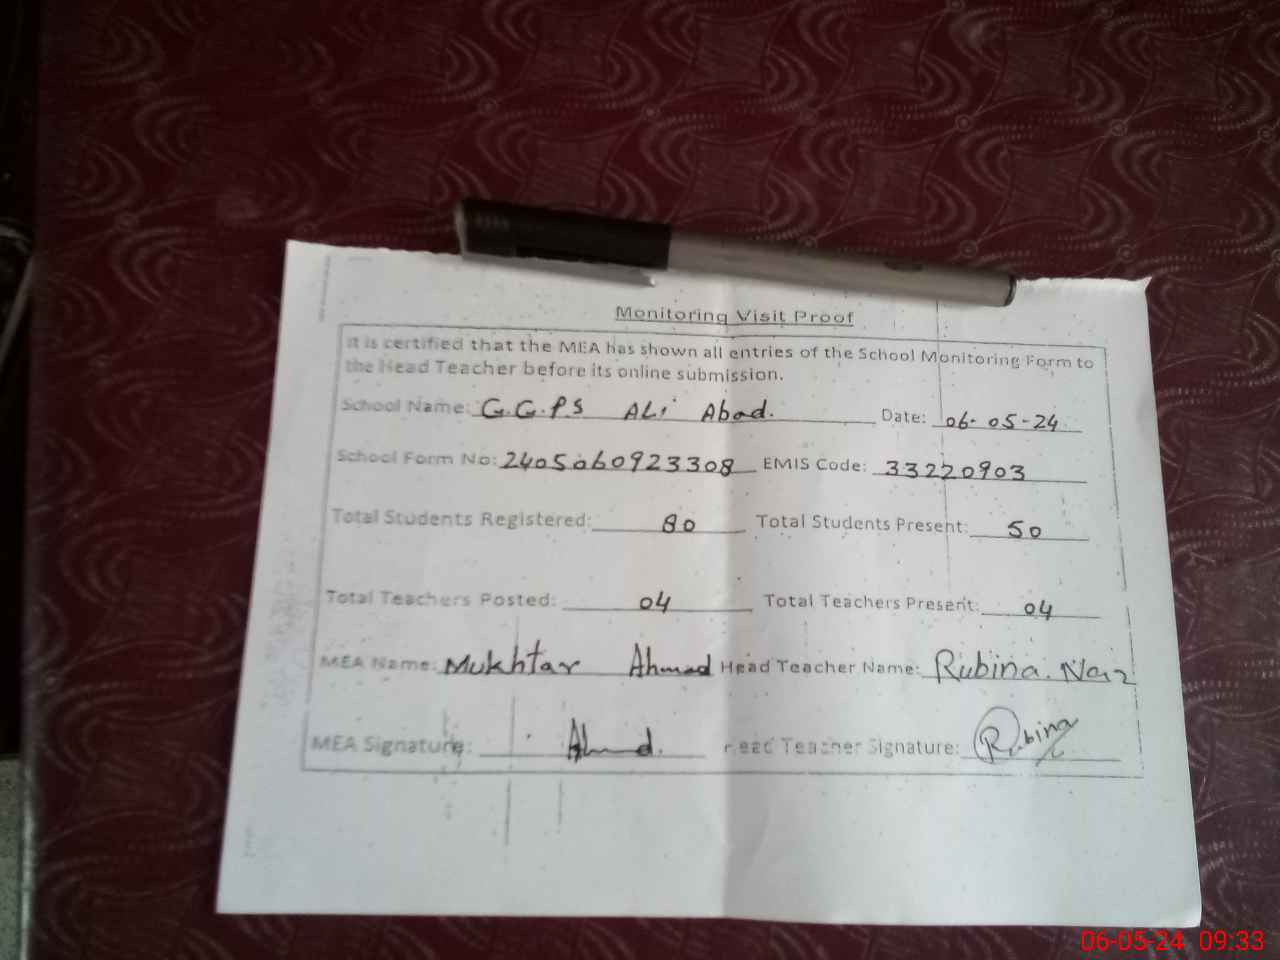 Monitoring Visit Proof
It is certified that the MEA has shown all entries of the School Monitoring Form to
the Head Teacher before its online submission.
School Name: G.G.P.S ALi Abad. Date: 06-05-24
School Form No: 2405060923308 EMIS Code: 33220903
Total Students Registered: 80 Total Students Present: 50
Total Teachers Posted: 04 Total Teachers Present: 04
MEA Name: Mukhtar Ahmad Head Teacher Name: Rubina. Naz
MEA Signature: Ahmad. Head Teacher Signature: Rubina
06-05-24 09:33